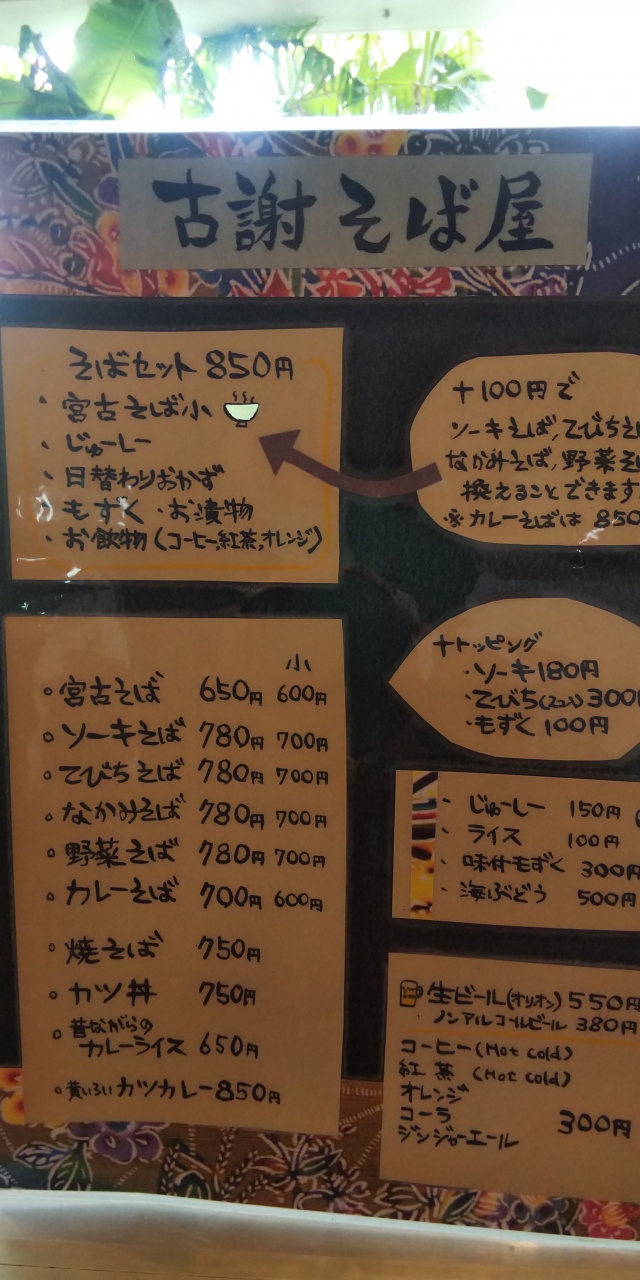 古謝そば屋
そばセット 850円
・宮古そば小
・じゅーしー
・日替わりおかず
・もずく ・お漬物
・お飲物(コーヒー,紅茶,オレンジ)
+100円で
ソーキそば,てびちそ
なかみそば,野菜そ
換えることできます
※カレーそばは 850
小
宮古そば 650円 600円
ソーキそば 780円 700円
てびちそば 780円 700円
なかみそば 780円 700円
野菜そば 780円 700円
カレーそば 700円 600円
焼そば 750円
カツ丼 750円
昔ながらの
カレーライス 650円
黄いろいカツカレー 850円
+トッピング
・ソーキ180円
・てびち(2コ入) 300円
・もずく 100円
・じゅーしー 150円
・ライス 100円
・味付もずく 300円
・海ぶどう 500円
生ビール(オリオン) 550円
・ノンアルコールビール 380円
コーヒー(Hot cold)
紅茶 (Hot cold)
オレンジ
コーラ 300円
ジンジャーエール